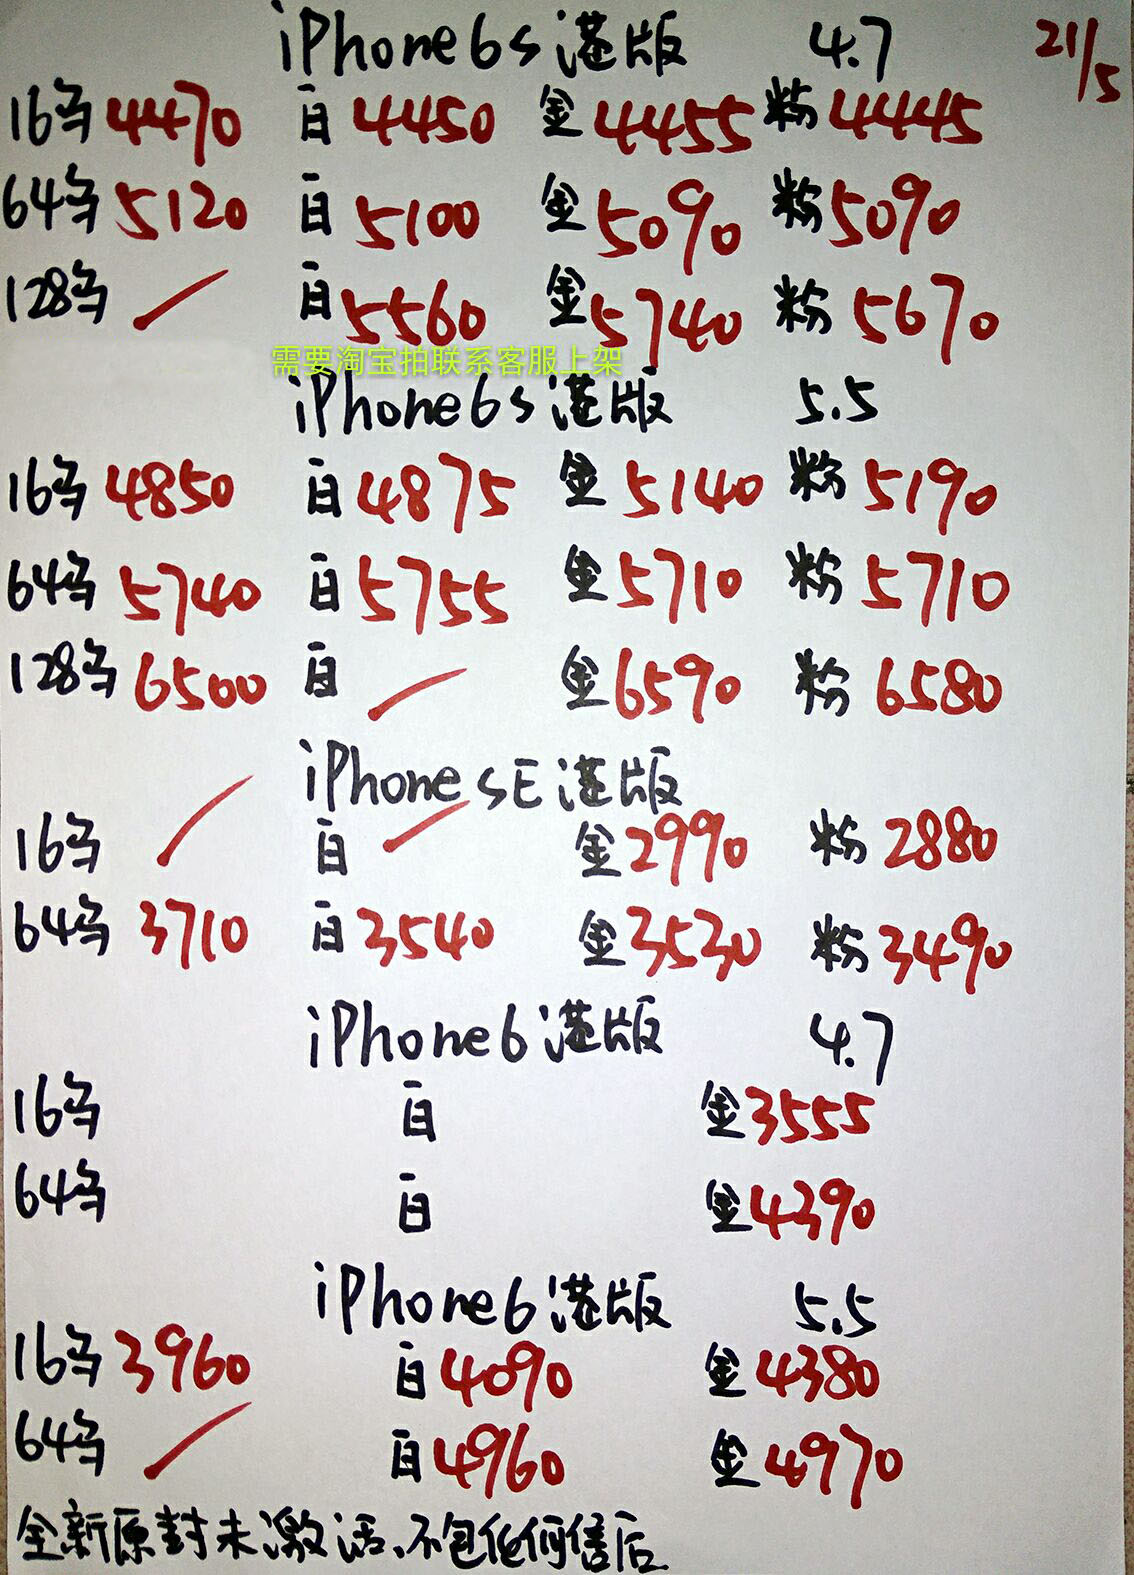 iPhone6s港版 4.7 21/5
16乌4470 白4450 金4455 粉4445
64乌5120 白5100 金5090 粉5090
128乌/ 白5560 金5740 粉5670
需要淘宝拍联系客服上架
iPhone6s港版 5.5
16乌4850 白4875 金5140 粉5190
64乌5740 白5755 金5710 粉5710
128乌6500 白/ 金6590 粉6580
iPhone SE港版
16乌/ 白/ 金2990 粉2880
64乌3710 白3540 金3530 粉3490
iPhone6港版 4.7
16乌 白 金3555
64乌 白 金4390
iPhone6港版 5.5
16乌3960 白4090 金4380
64乌/ 白4960 金4970
全新原封未激活、不包任何售后